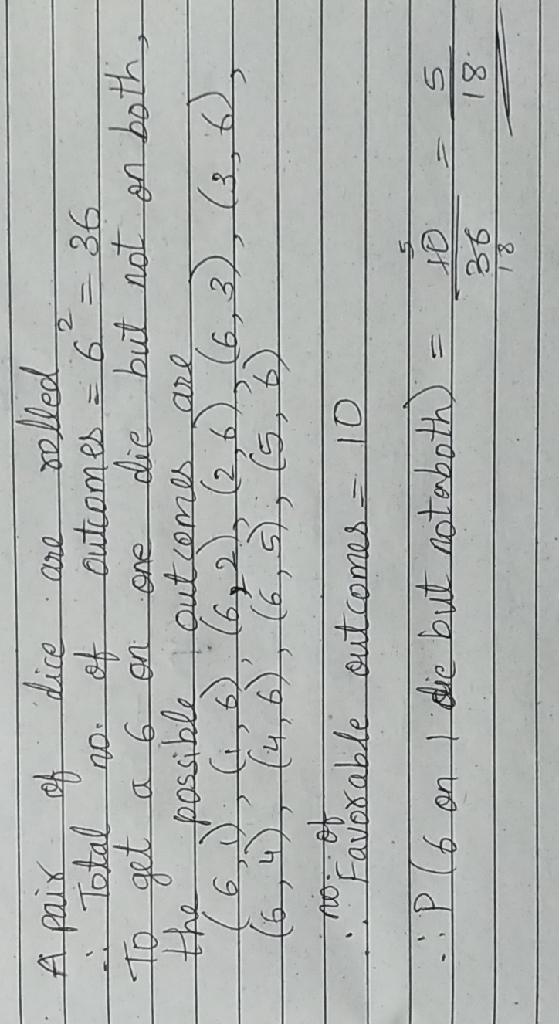 A pair of dice are rolled
∴ Total no. of outcomes = 6² = 36
To get a 6 on one die but not on both,
the possible outcomes are
(6, 1), (1, 6), (6, 2), (2, 6), (6, 3), (3, 6),
(6, 4), (4, 6), (6, 5), (5, 6)
∴ no. of Favorable outcomes = 10
∴ P (6 on 1 die but not on both) = 10/36 = 5/18
5
18